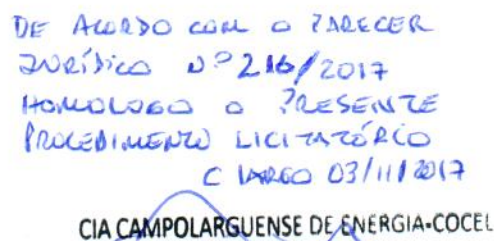 DE ACORDO COM O PARECER
JURÍDICO Nº 216/2017
HOMOLOGO O PRESENTE
PROCEDIMENTO LICITATÓRIO
C LARGO 03/11/2017
CIA CAMPOLARGUENSE DE ENERGIA-COCEL